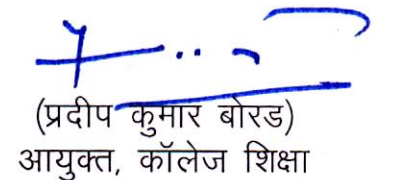 (प्रदीप कुमार बोरड)
आयुक्त, कॉलेज शिक्षा